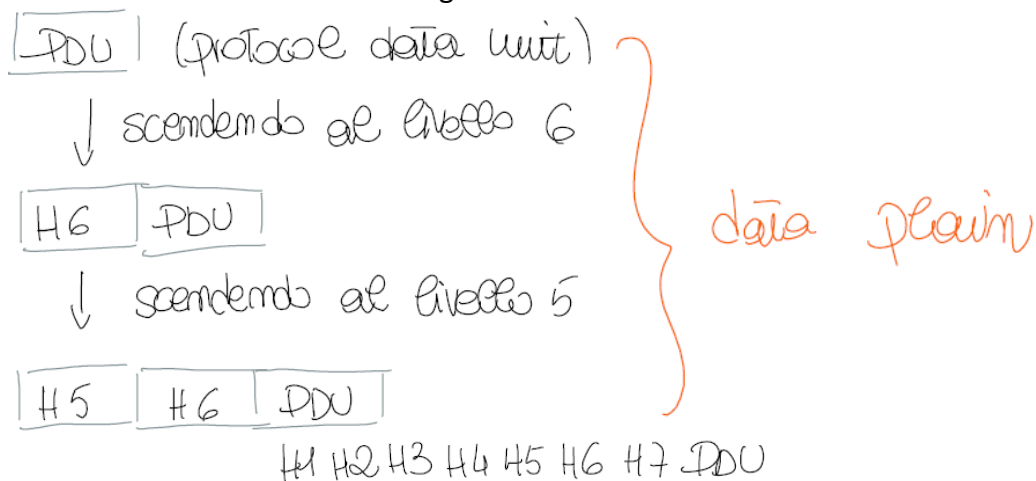 PDU (protocol data unit)
↓ scendendo al livello 6
H6 PDU
data plain
↓ scendendo al livello 5
H5 H6 PDU
H1 H2 H3 H4 H5 H6 H7 PDU